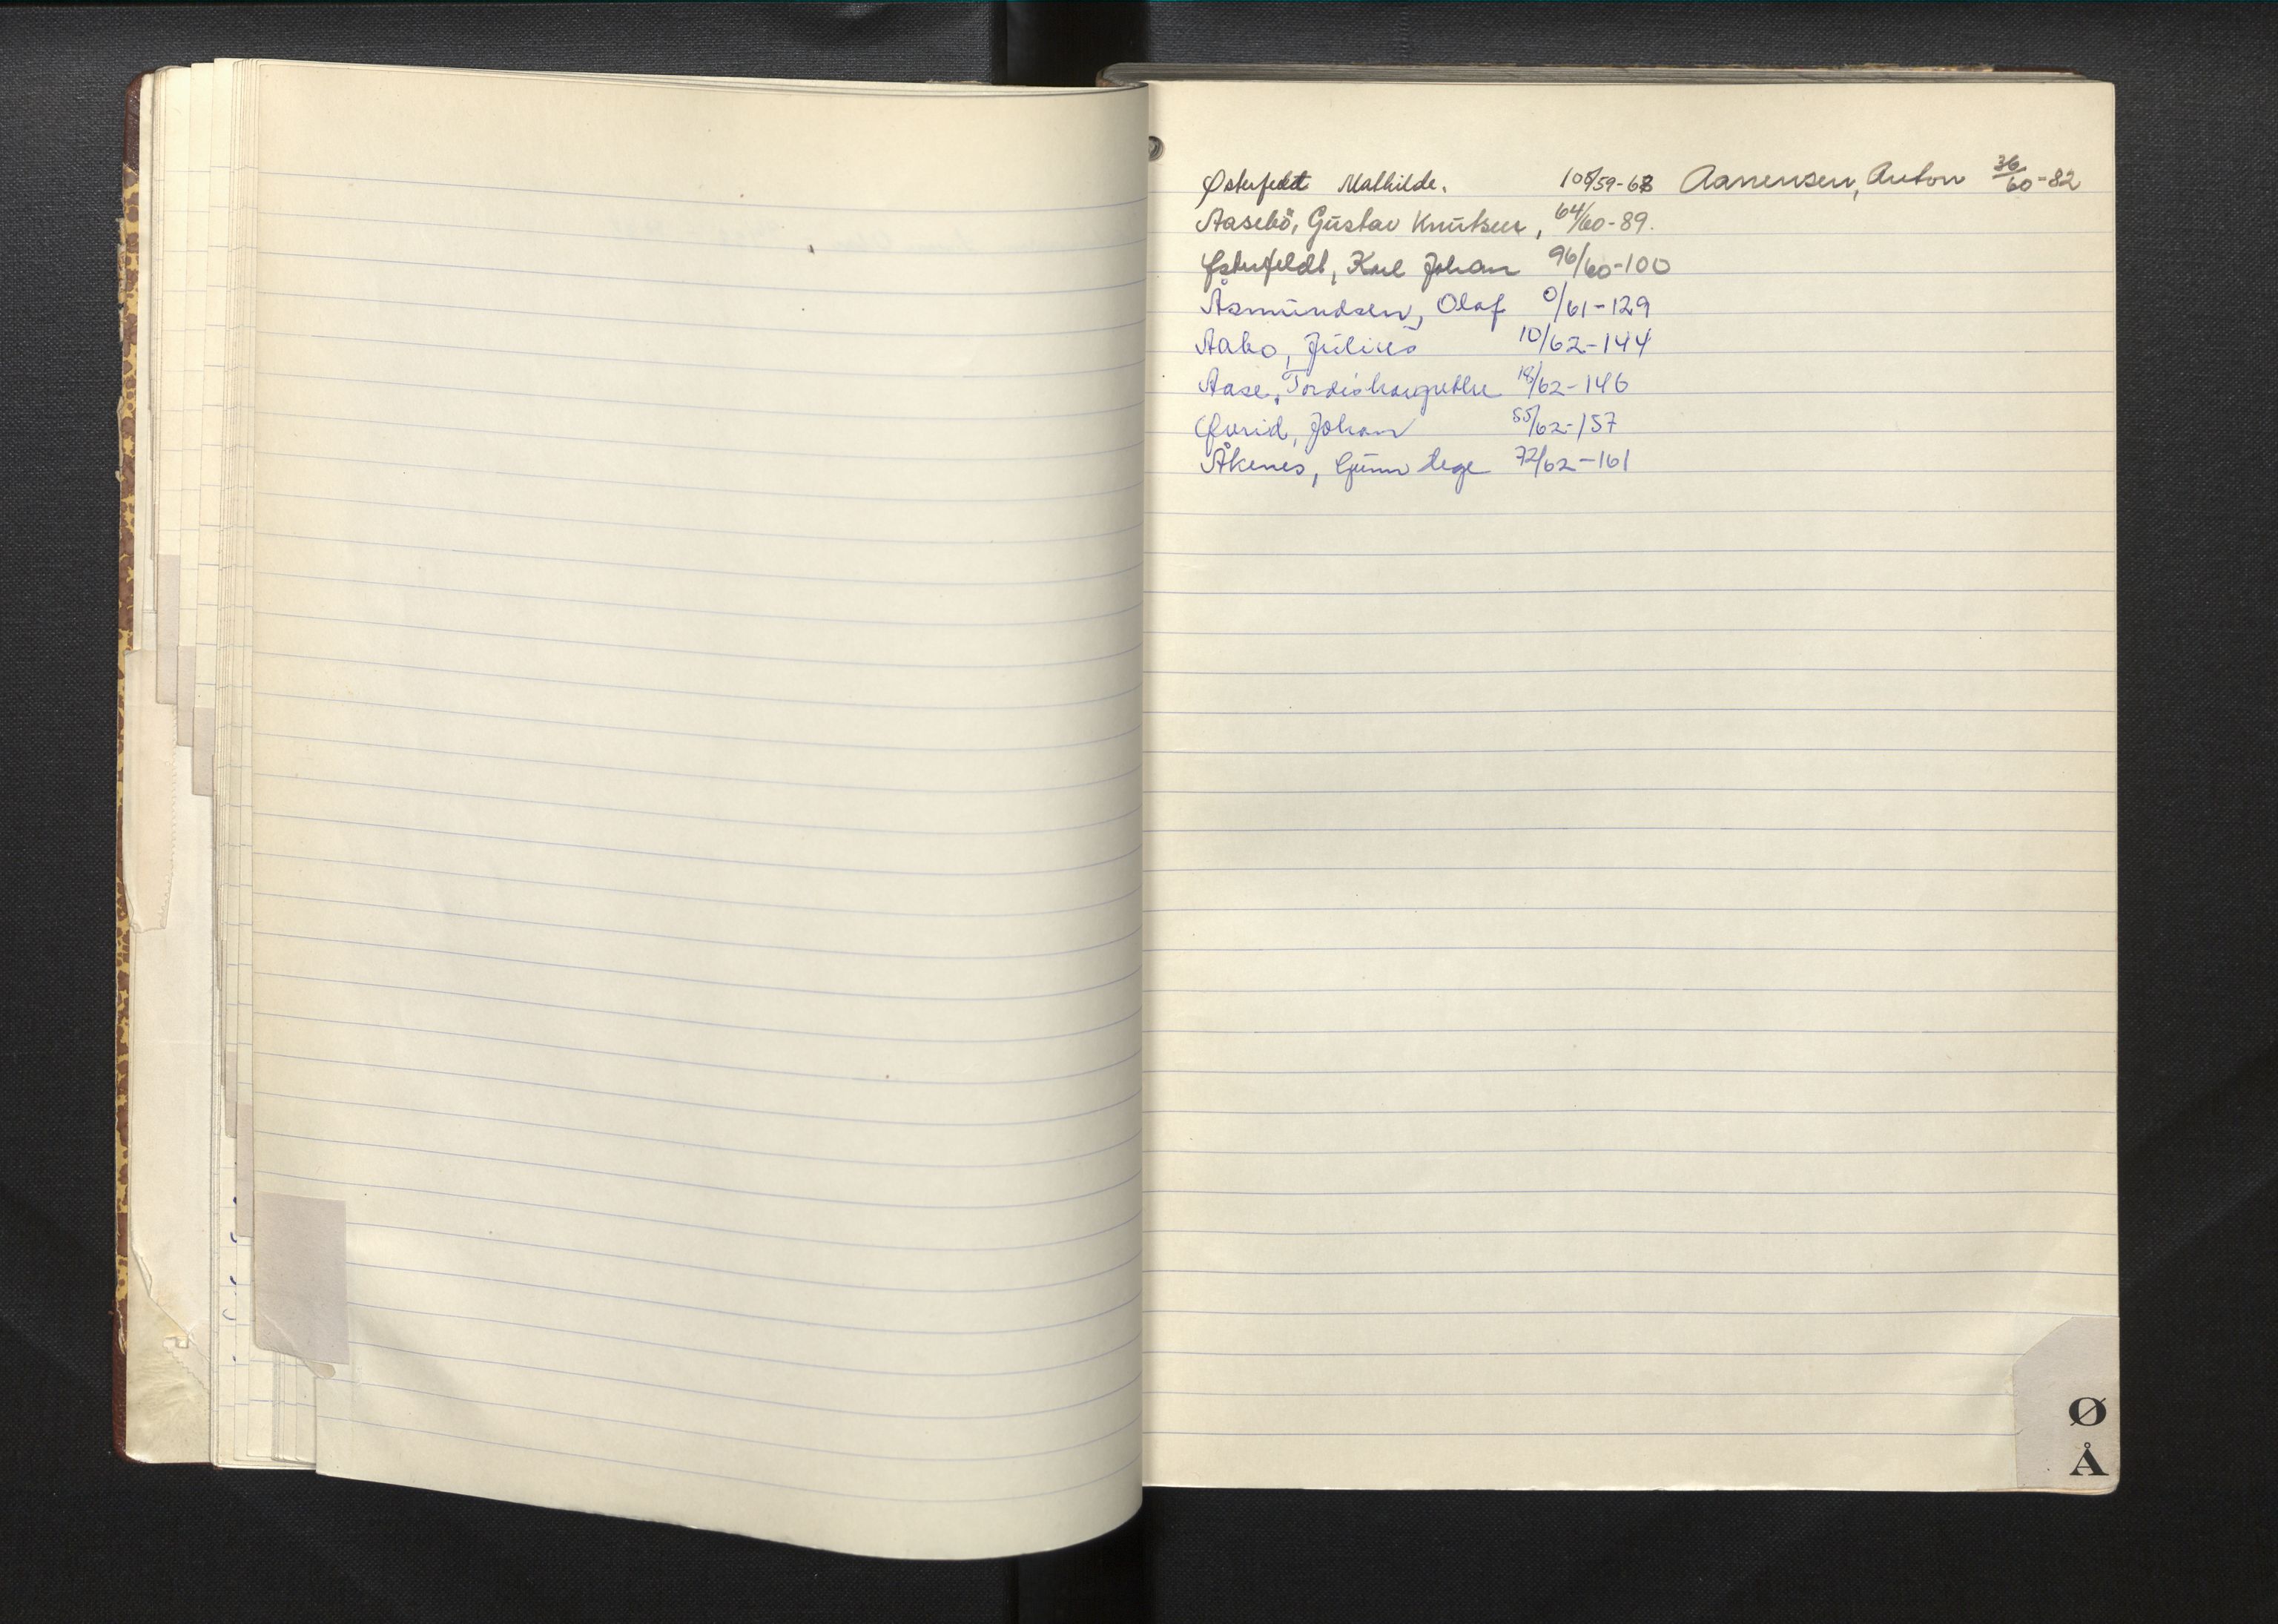 Østerfeldt Mathilde. 108/59-68 Aanensen, Anton 36/60-82
Aasebö, Gustav Knutsen, 64/60-89.
Østerfeldt, Karl Johan 96/60-100
Åsmundsen, Olaf 0/61-129
Aabo, Julius 10/62-144
Aase, Tordis 18/62-146
Johan 55/62-157
Åkenes, Gunn Tege 72/62-161
Ø
Å